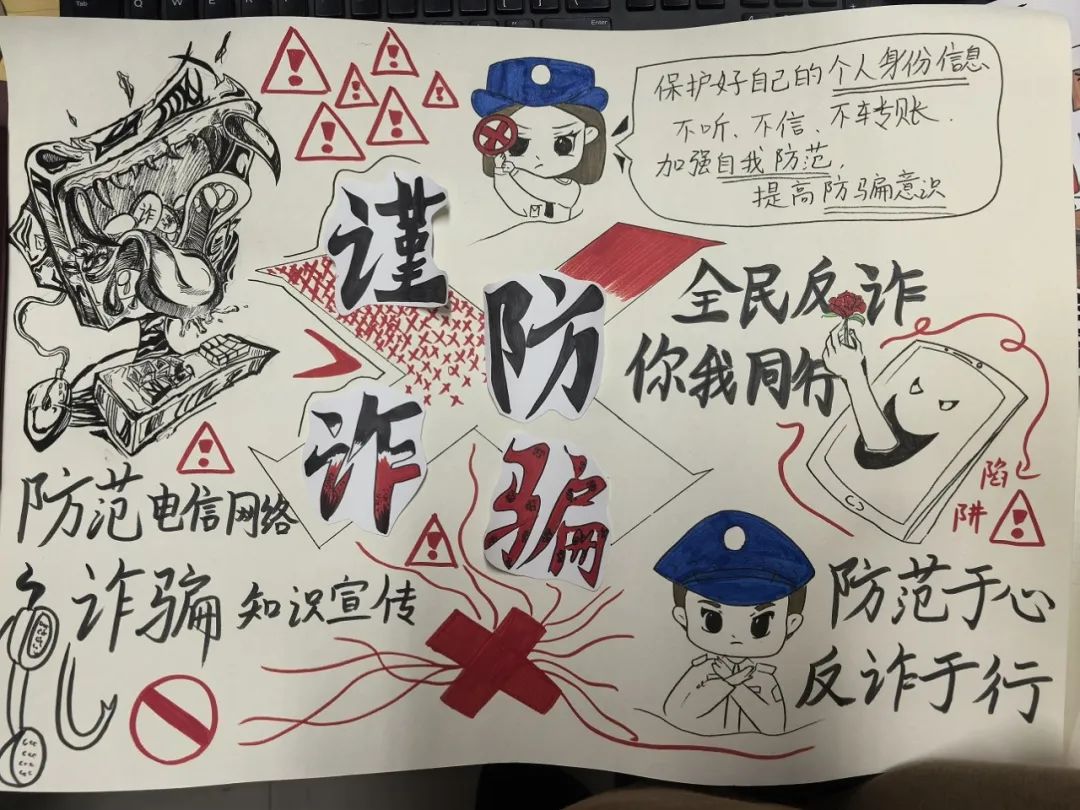 保护好自己的个人身份信息
不听、不信、不转账.
加强自我防范,
提高防骗意识
谨防
诈骗
全民反诈
你我同行
防范电信网络
诈骗知识宣传
陷
阱
防范于心
反诈于行